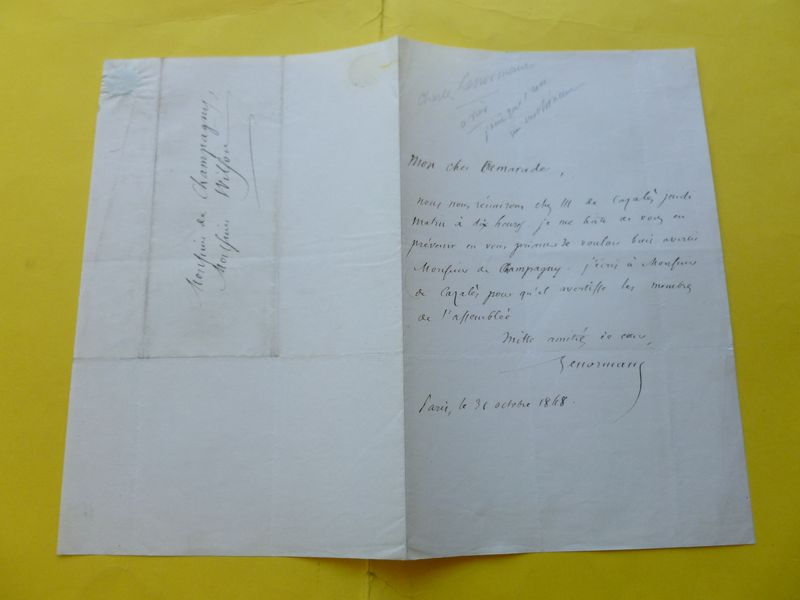 Monsieur de Champagny
Monsieur Wilson
Charles Lenormant
Mon cher camarade,
nous nous réunirons chez M de Cazalès jeudi
matin à dix heures je me hâte de vous en
prévenir en vous priant de vouloir bien avertir
Monsieur de Champagny. j'écris à Monsieur
de Cazalès pour qu'il avertisse les membres
de l'assemblée
Mille amitiés de cœur,
Lenormant
Paris, le 31 octobre 1848.